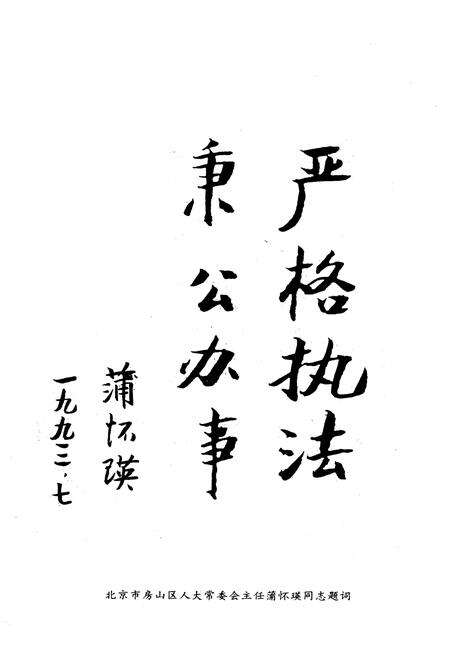 严格执法
秉公办事
蒲怀瑛
一九九三.七
北京市房山区人大常委会主任蒲怀瑛同志题词